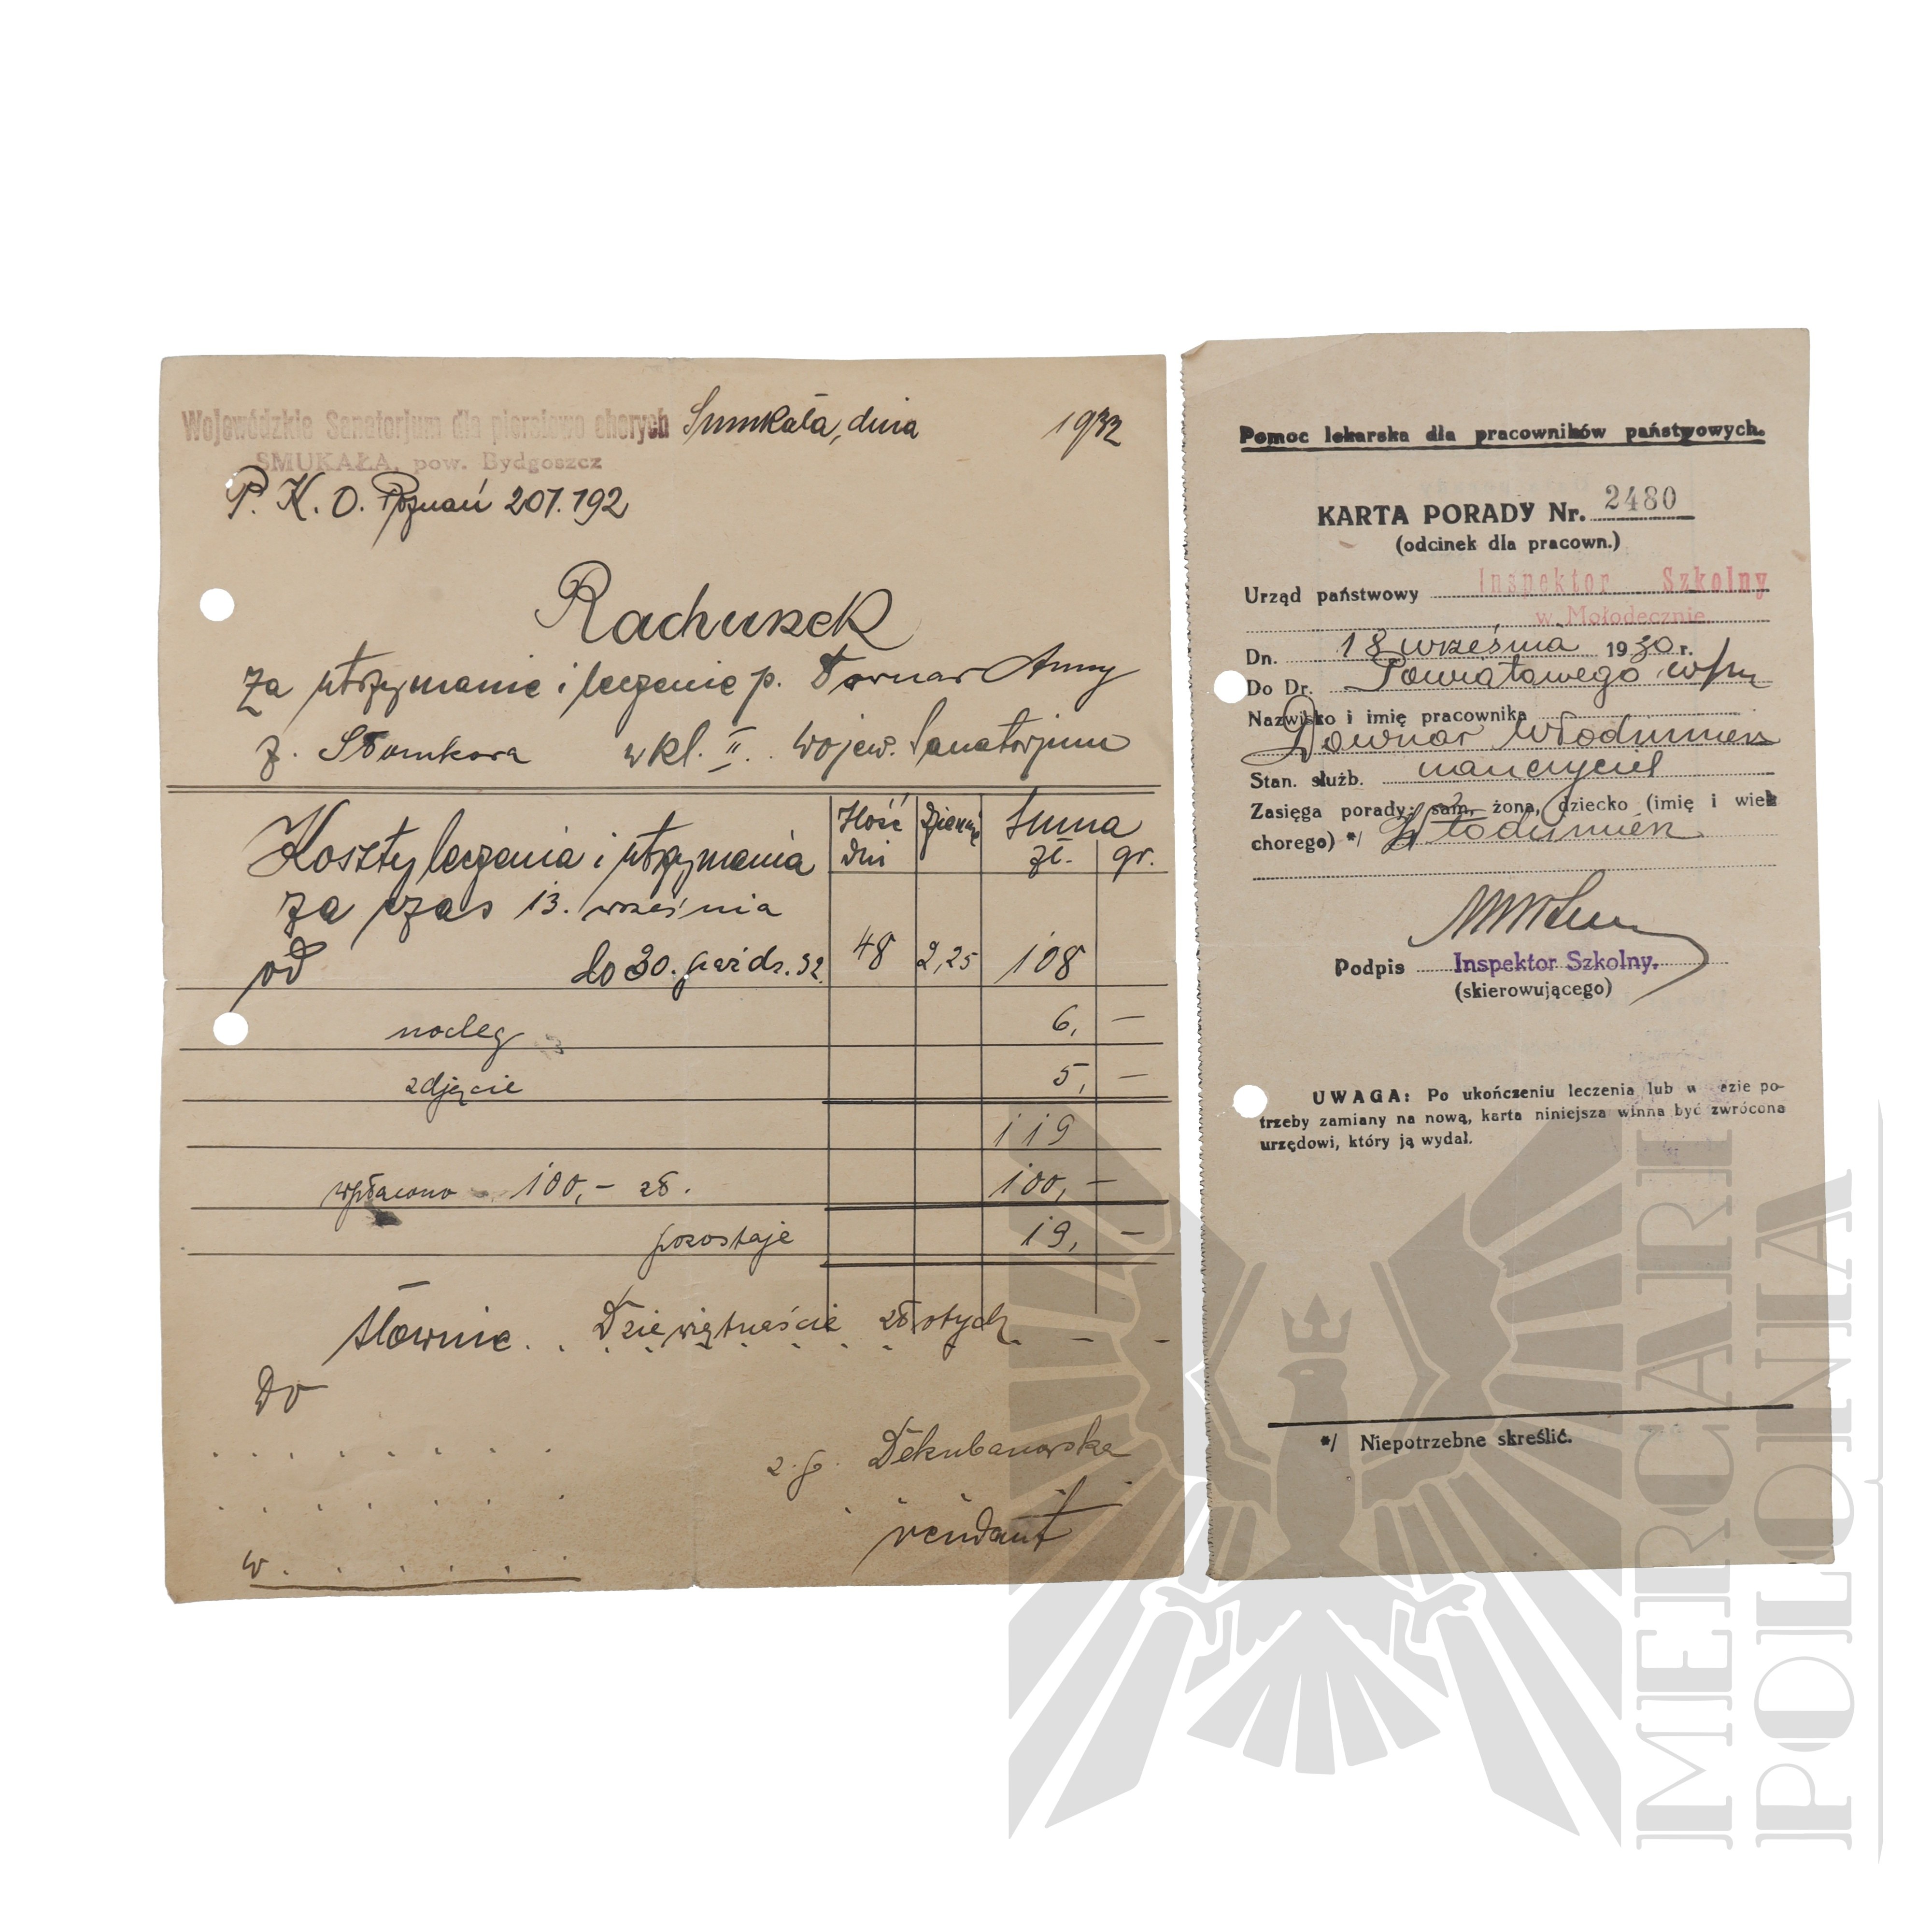 Wojewódzkie Sanatorjum dla piersiowo chorych Smukała, dnia 1932
SMUKAŁA, pow. Bydgoszcz
P. K. O. Poznań 207.192
Rachunek
za utrzymanie i leczenie p. Downar Anny
z. w kl. II. Wojew. Sanatorjum
Koszty leczenia i utrzymania Ilość dni dziennie Suma zł. gr.
za czas 13. września
od do 30. paźdz. 32. 48 2,25 108
nocleg 6, —
zdjęcie 5, —
119
wpłacono 100,- zł. 100, —
pozostaje 19, —
słownie . . Dziewiętnaście złotych. — —
Do
z. p. Dekubanowska
w . . . . . . rendant
Pomoc lekarska dla pracowników państwowych.
KARTA PORADY Nr. 2480
(odcinek dla pracown.)
Urząd państwowy Inspektor Szkolny
w Mołodecznie.
Dn. 18 września 1930 r.
Do Dr. Powiatowego
Nazwisko i imię pracownika
Downar Włodzimierz
Stan. służb. nauczyciel
Zasięga porady: sam, żona, dziecko (imię i wiek
chorego) */ Włodzimierz
Podpis Inspektor Szkolny.
(skierowującego)
UWAGA: Po ukończeniu leczenia lub w razie po-
trzeby zamiany na nową, karta niniejsza winna być zwrócona
urzędowi, który ją wydał.
*/ Niepotrzebne skreślić.
MERCARI
POLONIA